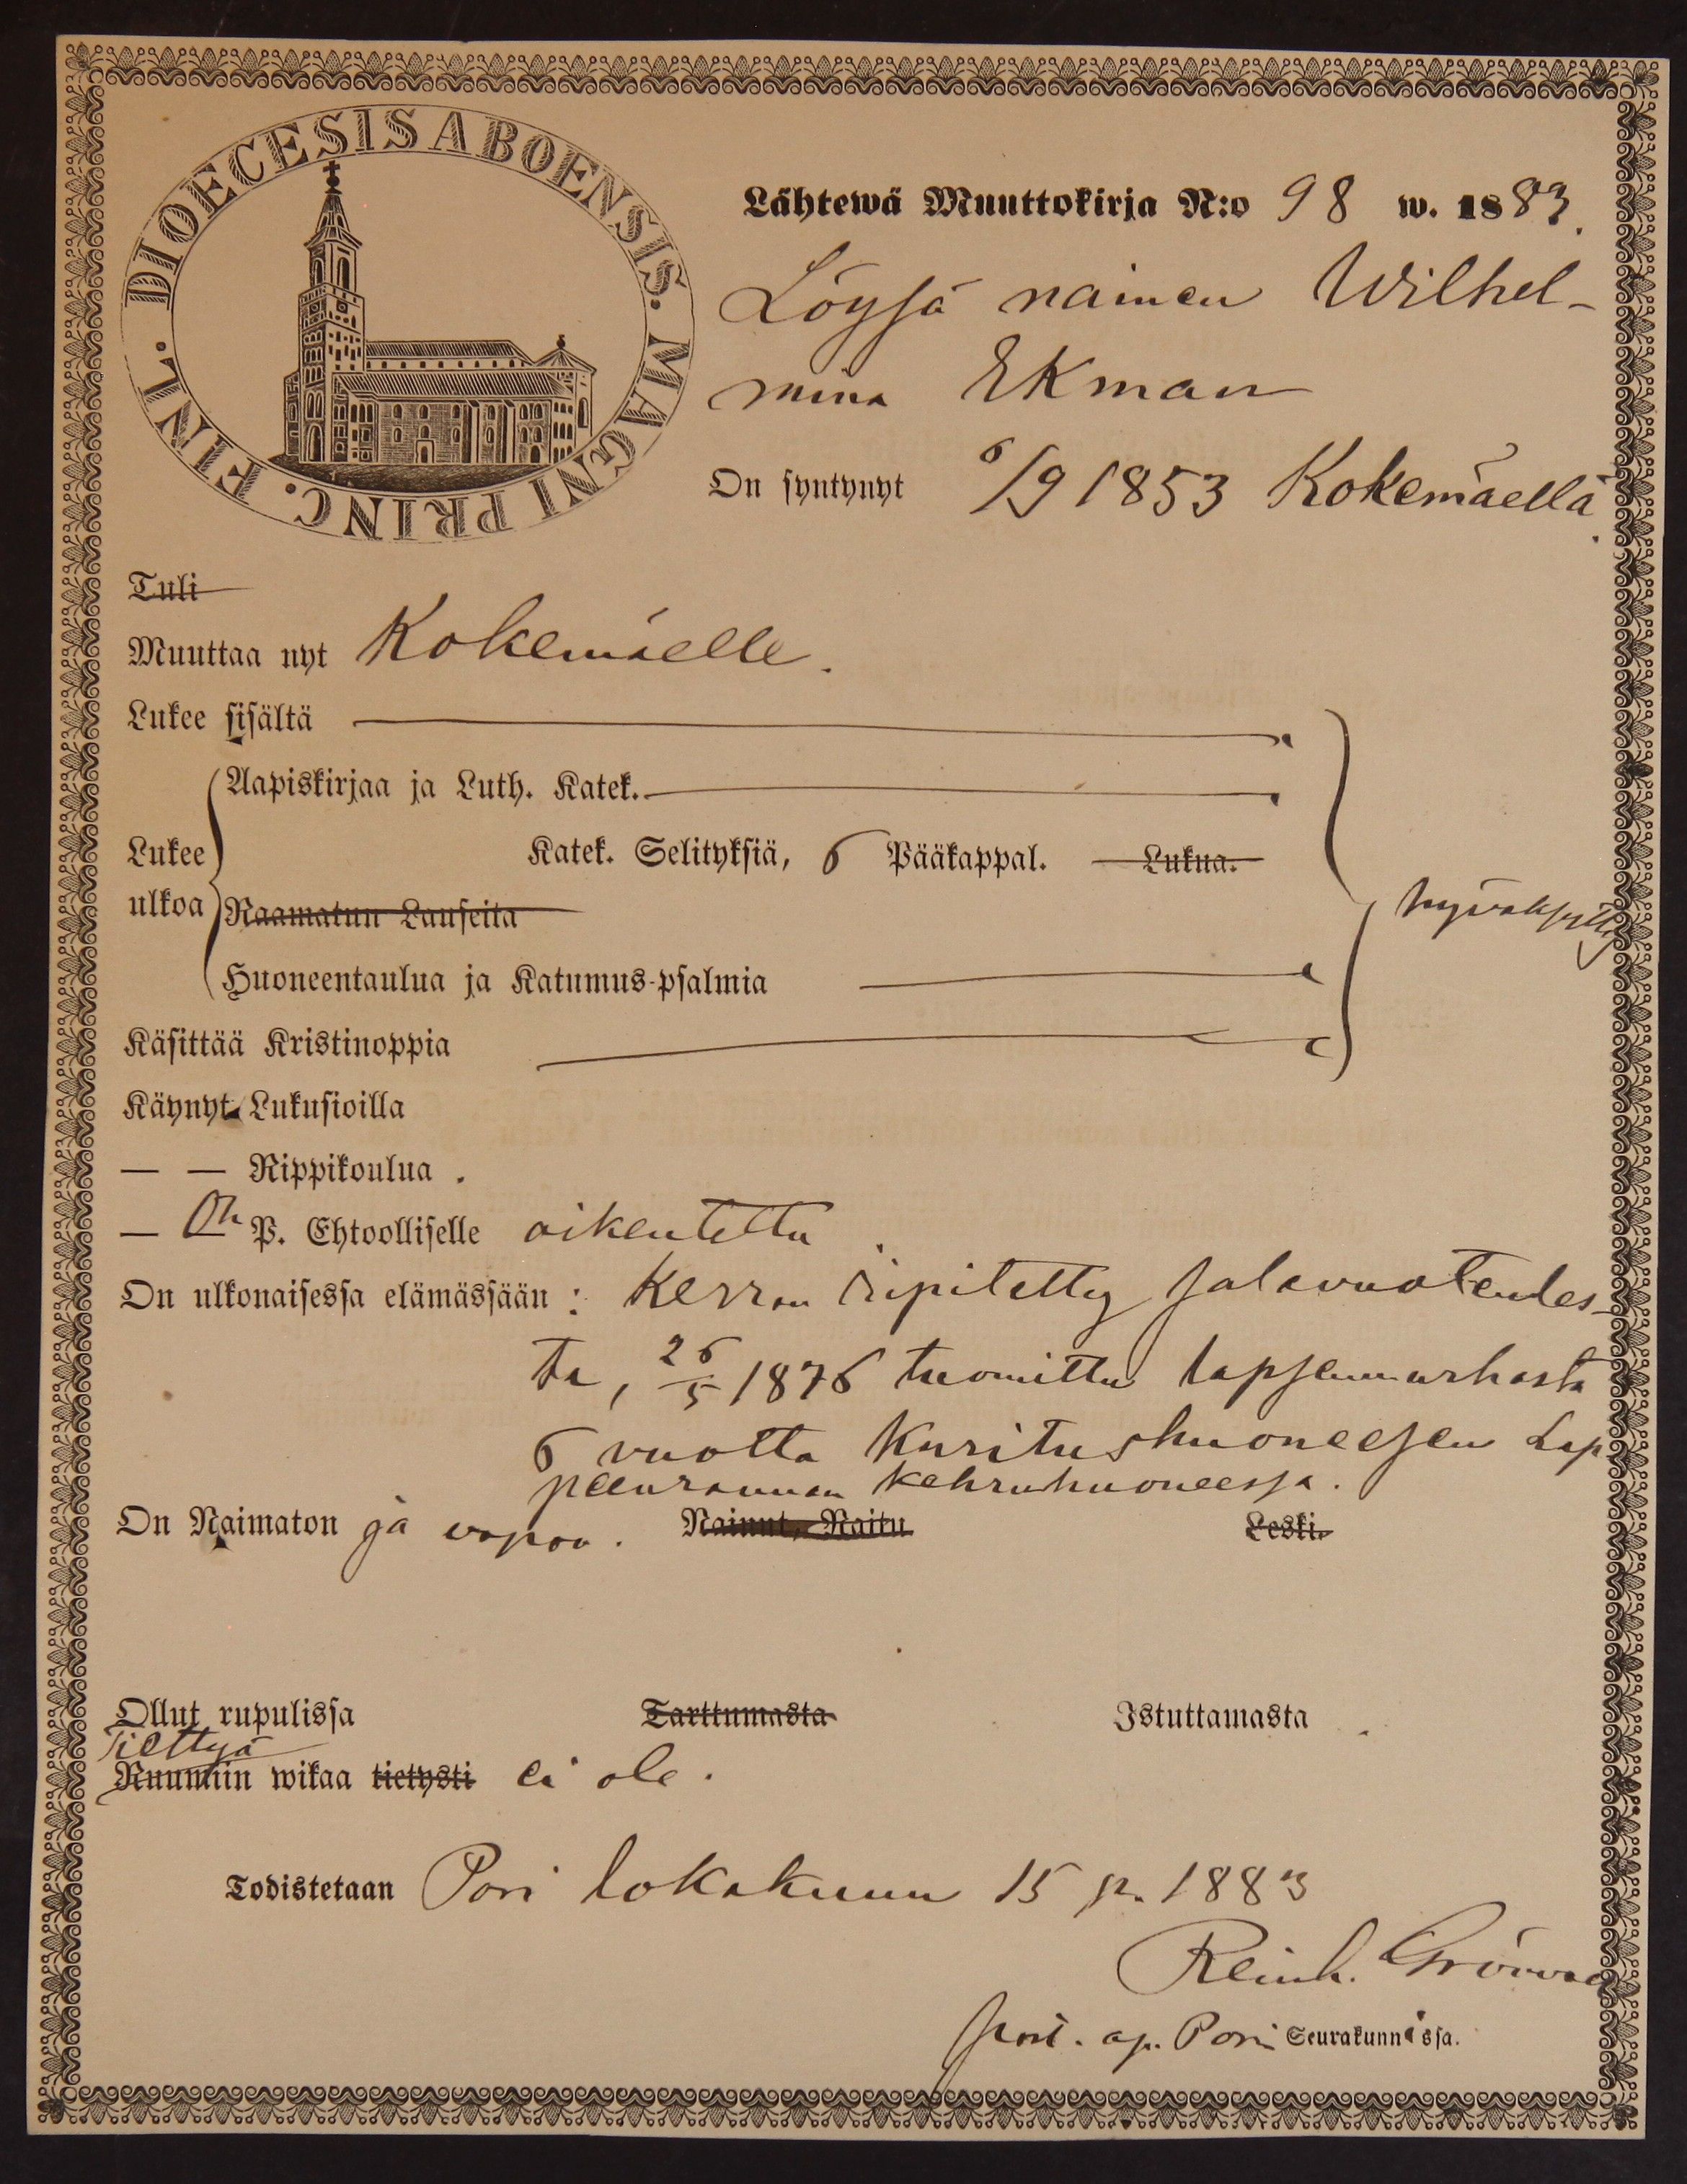 DIOECESIS ABOENSIS. MAGNI PRINC. FINL.
Lähtewä Muuttokirja N:o 98 w. 1883.
Löysä nainen Wilhel-
mina Ekman
On syntynyt 6/9 1853 Kokemäellä.
Tuli
Muuttaa nyt Kokemäelle.
Lukee sisältä
Aapiskirjaa ja Luth. Katek.
Lukee Katek. Selityksiä, 6 Pääkappal. Lukua.
hyväksytty
ulkoa Raamatun Lauseita
Huoneentaulua ja Katumus-psalmia
Käsittää Kristinoppia
Käynyt Lukusioilla
— — Rippikoulua.
— On P. Ehtoolliselle oikeutettu
On ulkonaisessa elämässään: Kerran ripitetty salavuoteudes-
ta, 26/5 1876 tuomittu lapsenmurhasta
6 vuotta Kuritushuoneesen Lap
peenrannan kehruhuoneessa.
On Naimaton ja vapaa. Nainut, Naitu Leski.
Ollut rupulissa Tarttumasta Istuttamasta
Tiettyä
Ruumiin wikaa tietysti ei ole.
Todistetaan Pori lokakuun 15 p. 1883
Reinh.
ap. Pori Seurakunnissa.